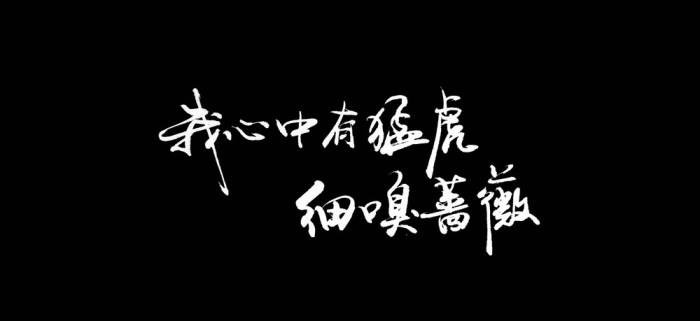 我心中有猛虎
细嗅蔷薇